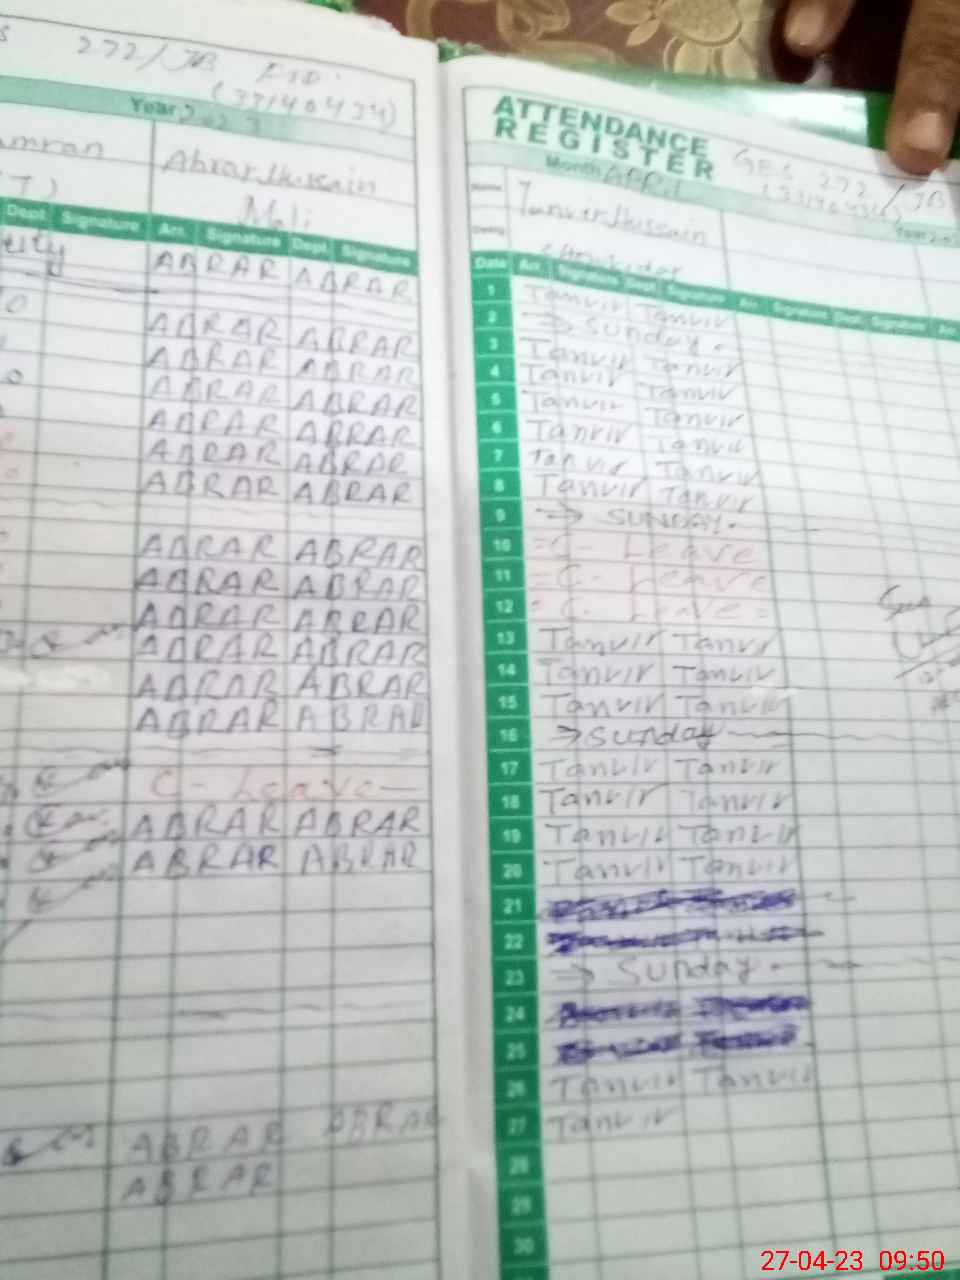 272/JB FSD
(33140434)
Year 2023
Abrar Hussain
Mali
Dept. Signature Arr. Signature Dept. Signature
ABRAR ABRAR
ABRAR ABRAR
ABRAR ABRAR
ABRAR ABRAR
ABRAR ABRAR
ABRAR ABRAR
ABRAR ABRAR
ABRAR ABRAR
ABRAR ABRAR
ABRAR ABRAR
ABRAR ABRAR
ABRAR ABRAR
ABRAR ABRAR
C- Leave
ABRAR ABRAR
ABRAR ABRAR
ABRAR ABRAR
ABRAR
ATTENDANCE
REGISTER
GES 272/JB
Month April
Name Tanvir Hussain
Date Arr. Signature Dept. Signature Arr. Signature Dept. Signature Arr.
1 Tanvir Tanvir
2 → Sunday.
3 Tanvir Tanvir
4 Tanvir Tanvir
5 Tanvir Tanvir
6 Tanvir Tanvir
7 Tanvir Tanvir
8 Tanvir Tanvir
9 → SUNDAY.
10 =C- Leave
11 =C- Leave
12 = C. Leave =
13 Tanvir Tanvir
14 Tanvir Tanvir
15 Tanvir Tanvir
16 → Sunday
17 Tanvir Tanvir
18 Tanvir Tanvir
19 Tanvir Tanvir
20 Tanvir Tanvir
21
22
23 → Sunday.
24
25
26 Tanvir Tanvir
27 Tanvir
28
29
30
27-04-23 09:50